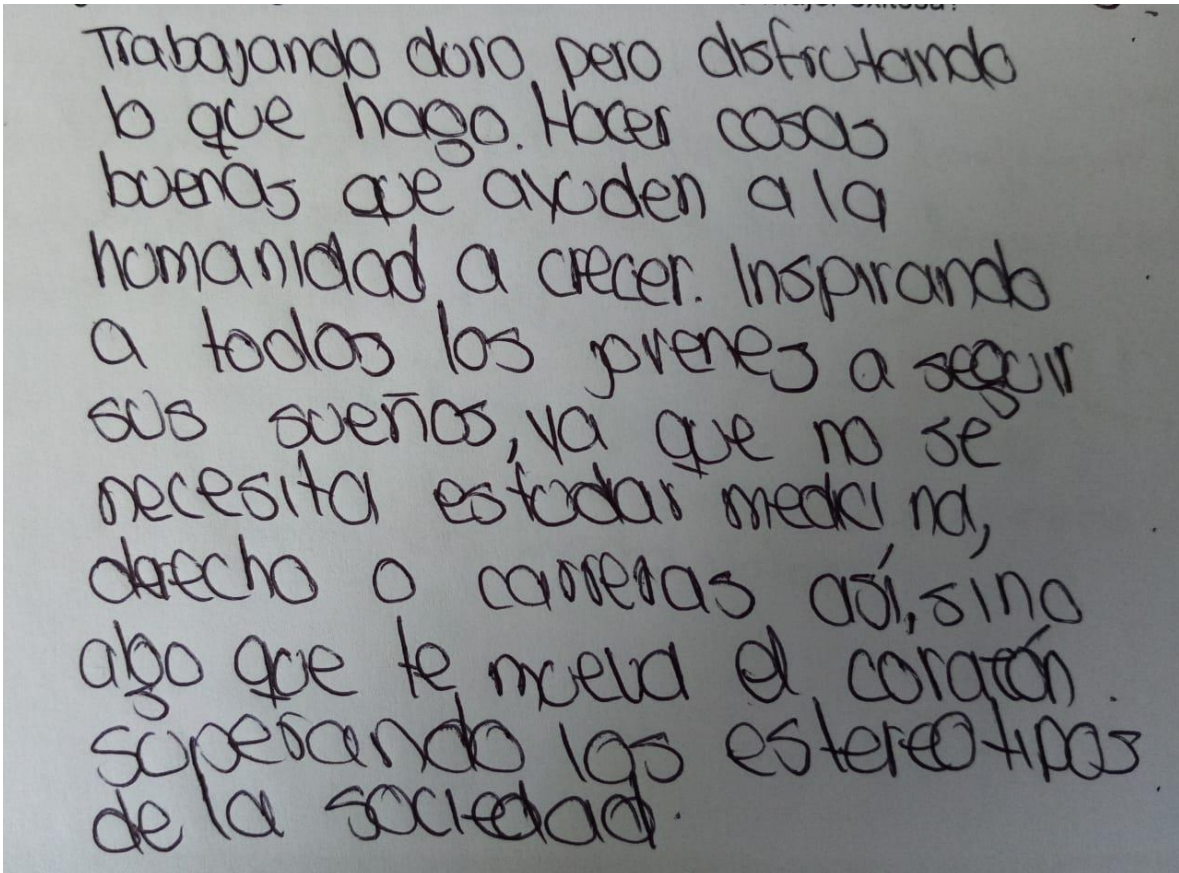 Trabajando duro pero disfrutando
lo que hago. Hacer cosas
buenas que ayuden a la
humanidad a crecer. Inspirando
a todos los jovenes a seguir
sus sueños, ya que no se
necesita estudar medicina,
derecho o carreras así, sino
algo que te mueva el corazón.
superando los estereotipos
de la sociedad.